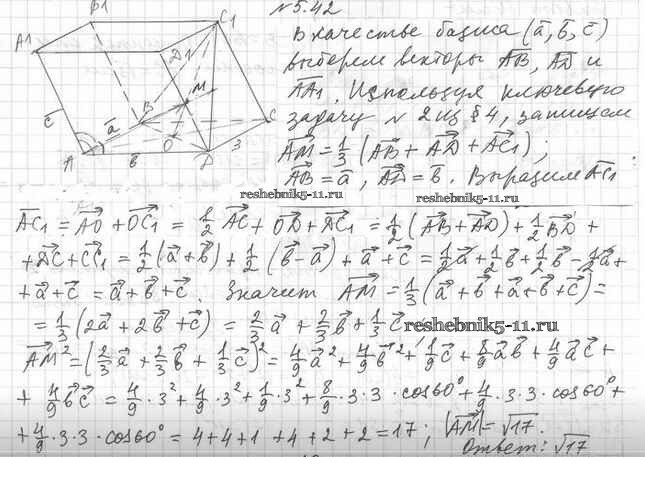 №5.42
B1
C1
A1
D1
M
B
C
O
A
D
a̅
b̅
c̅
3
В качестве базиса (a̅, b̅, c̅)
выберем векторы AB, AD и
AA1. Используя ключевую
задачу № 2 из § 4, запишем
AM = 1/3 (AB + AD + AC1);
AB = a, AD = b. Выразим AC1.
reshebnik5-11.ru
AC1 = AO + OC1 = 1/2 AC + OD + DC1 = 1/2 (AB + AD) + 1/2 BD +
+ DC + CC1 = 1/2 (a + b) + 1/2 (b - a) + a + c = 1/2 a + 1/2 b + 1/2 b - 1/2 a +
+ a + c = a + b + c. Значит AM = 1/3 (a + b + a + b + c) =
= 1/3 (2a + 2b + c) = 2/3 a + 2/3 b + 1/3 c.
reshebnik5-11.ru
AM² = (2/3 a + 2/3 b + 1/3 c)² = 4/9 a² + 4/9 b² + 1/9 c + 8/9 ab + 4/9 ac +
+ 4/9 bc = 4/9 · 3² + 4/9 · 3² + 1/9 · 3² + 8/9 · 3 · 3 · cos60° + 4/9 · 3 · 3 · cos60° +
+ 4/9 · 3 · 3 · cos60° = 4 + 4 + 1 + 4 + 2 + 2 = 17; |AM| = √17.
Ответ: √17